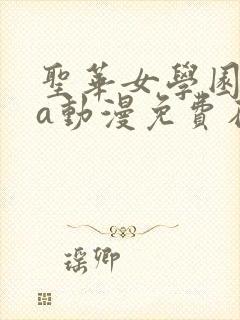 聖華女學園
a動漫免費
瑶卿